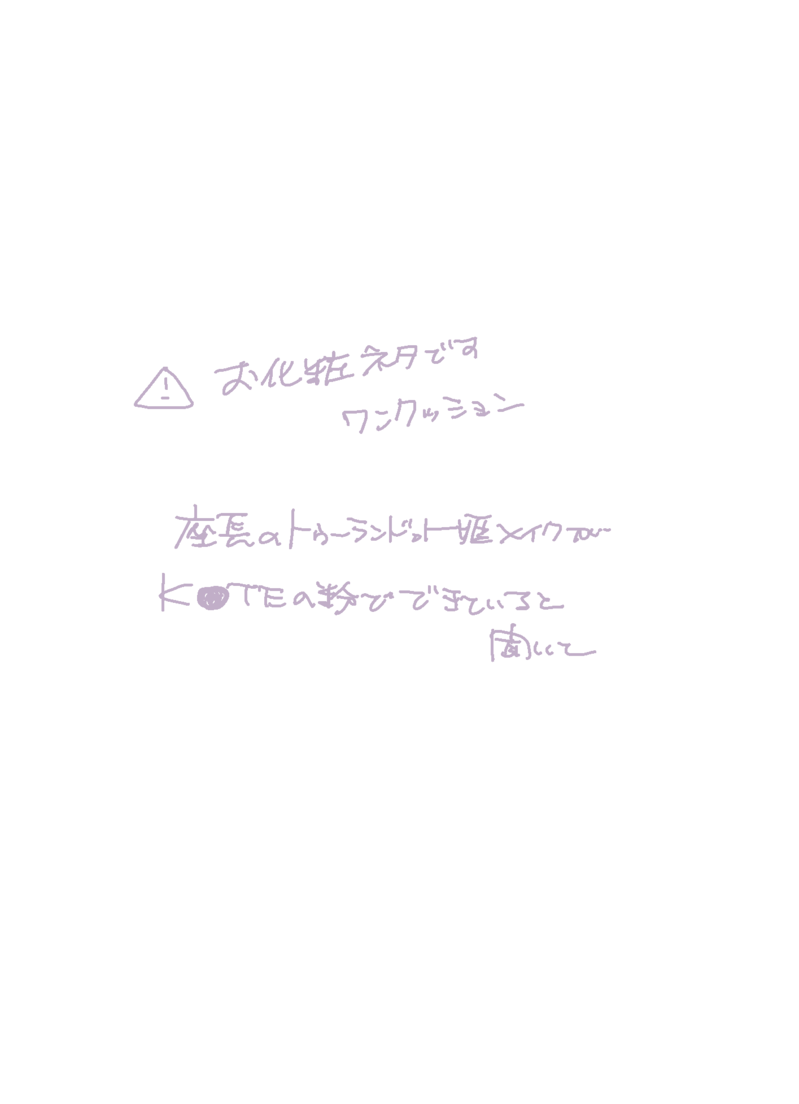 ⚠ お化粧ネタです
ワンクッション
座長のトゥーランドット姫メイクが
K●TEの粉でできていると
聞いて